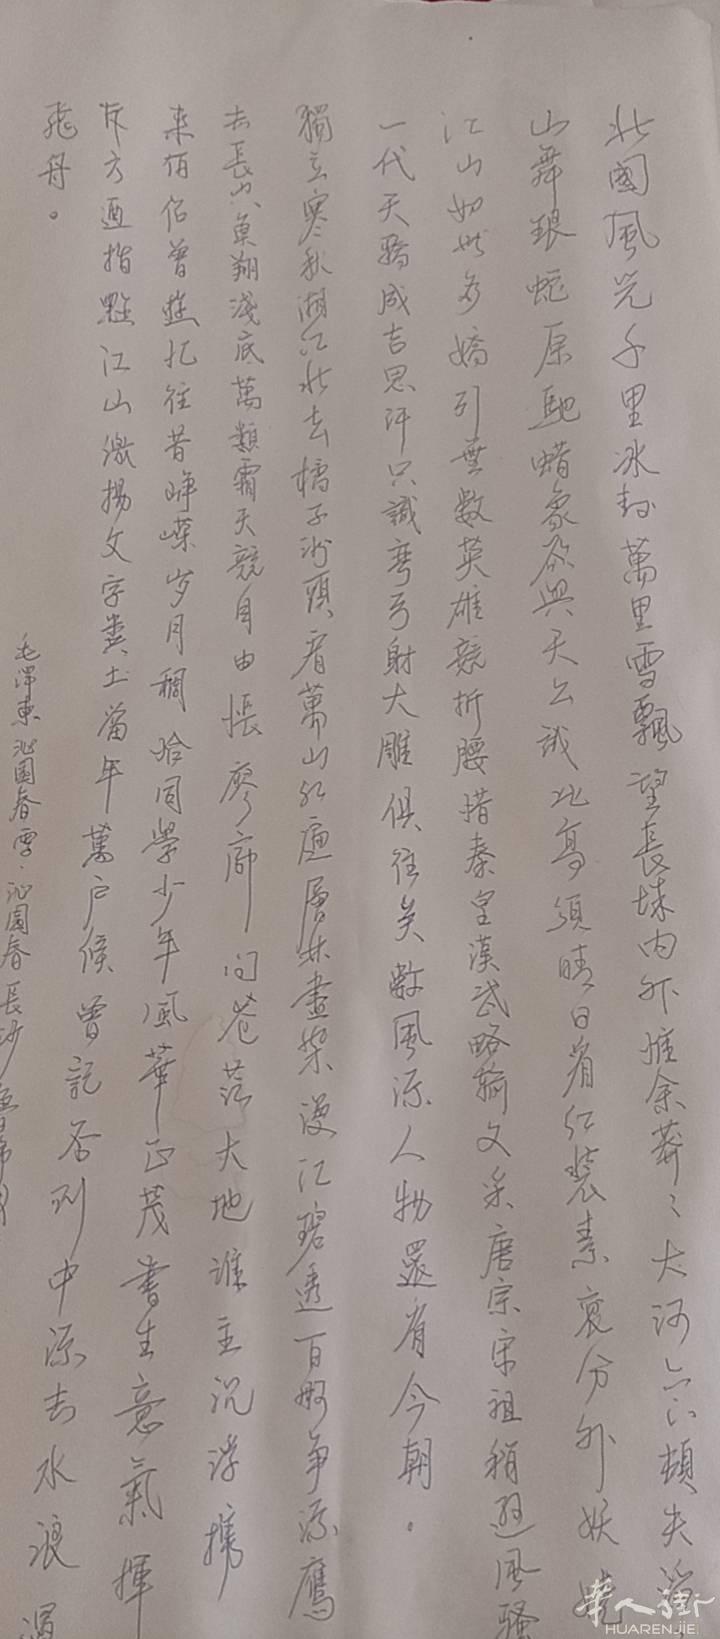 北國風光千里冰封萬里雪飄望長城内外惟余莽〻大河上下頓失滔
山舞銀蛇原馳蜡象欲與天公試比高須晴日看红裝素裹分外妖嬈
江山如此多嬌引無數英雄競折腰惜秦皇漢武略輸文采唐宗宋祖稍遜風騷
一代天驕成吉思汗只識彎弓射大雕俱往矣數風流人物還看今朝。
獨立寒秋湘江北去橘子洲頭看萬山红遍層林盡染漫江碧透百舸争流鷹
去長空魚翔淺底萬類霜天競自由悵廖廓問苍茫大地誰主沉浮攜
来佰侣曾遊忆往昔崢嶸岁月稠哈同學少年風華正茂書生意氣揮
斥方遒指點江山激揚文字粪土當年萬户候曾記否到中流击水浪遏
飛舟。
毛澤東沁園春雪·沁園春長沙
華人街
HUARENJIE